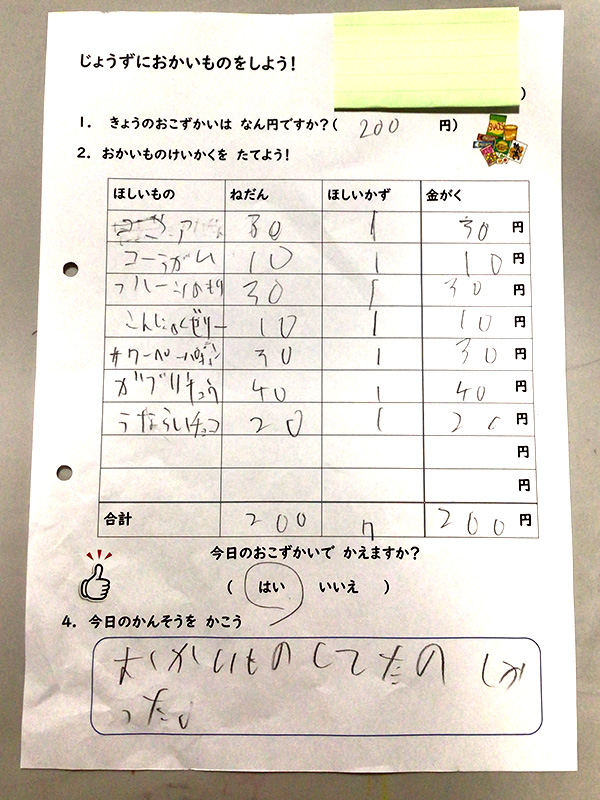 じょうずにおかいものをしよう！
)
1. きょうのおこずかいは なん円ですか？( 200 円)
2. おかいものけいかくを たてよう！
ほしいもの ねだん ほしいかず 金がく
30 1 30 円
コーラがム 10 1 10 円
30 1 30 円
こんにゃくゼリー 10 1 10 円
30 1 30 円
ガブリチュウ 40 1 40 円
うならいチョコ 20 1 20 円
円
円
合計 200 7 200 円
今日のおこずかいで かえますか？
( はい いいえ )
4. 今日のかんそうを かこう
おかいものしてたのしか
った。